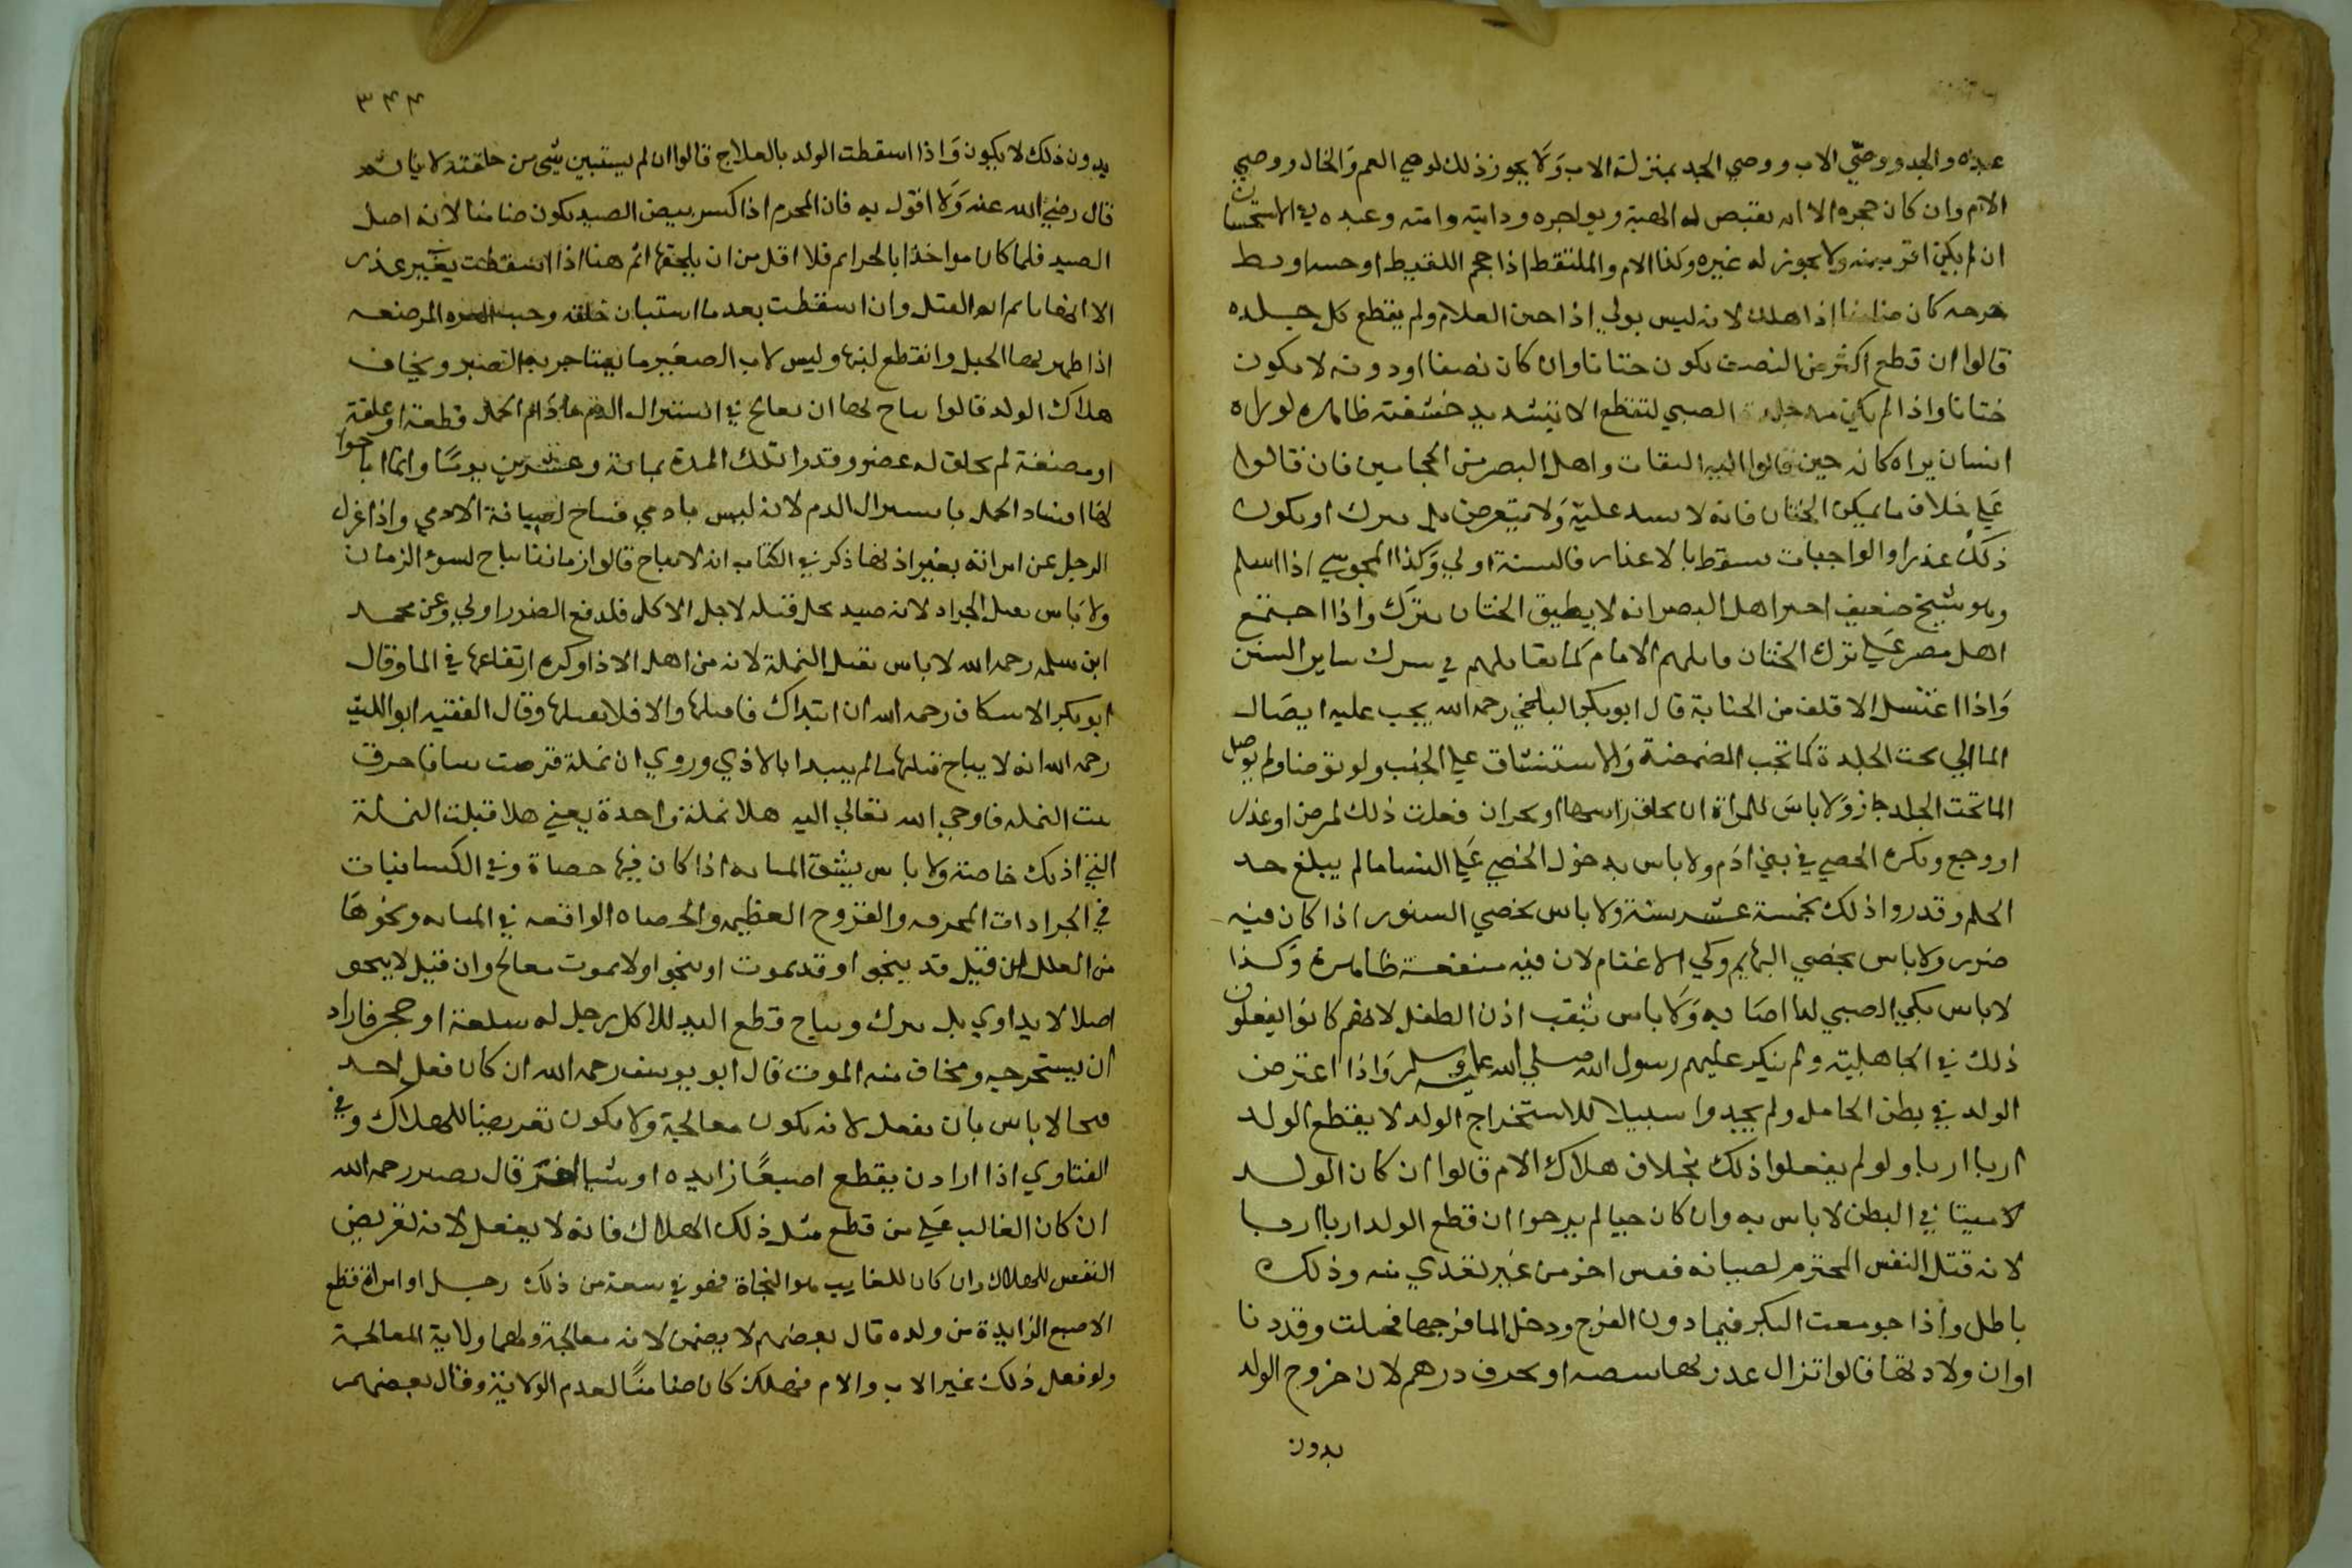 عنده والجد ووصي الاب ووصي الجد بمنزلة الاب ولا يجوز ذلك لوصي العم والخال ووصي
الام وان كان حجره الا ان يقبض له الهبة ويواجره ودابته وامته وعبده في الاستحسان
ان لم يكن اقرب منه ولا يجوز له غيره وكذا الام والملتقط اذا حجم اللقيط او
كان ضامنا اذا هلك لانه ليس بولي اذا ختن الغلام ولم يقطع كل جلده
قالوا ان قطع اكثر من النصف يكون ختانا وان كان نصفا او دونه لا يكون
ختانا واذا لم يكن الصبي لتقطع الا بتشديد حشفته ظاهره لو راه
انسان يراه كانه ختن قالوا اليه الثقات واهل البصر من الحجامين فان قالوا
علي خلاف ما يمكن الختان فانه لا يشدد عليه ولا يتعرض بل يترك او يكون
ذلك عذرا والواجبات تسقط بالاعذار فالسنة اولي وكذا المجوسي اذا اسلم
وهو شيخ ضعيف اخبر اهل البصر انه لا يطيق الختان يترك واذا اجتمع
اهل مصر علي ترك الختان قاتلهم الامام كما يقاتلهم في ترك ساير السنن
واذا اغتسل الاقلف من الجنابة قال ابو بكر البلخي رحمه الله يجب عليه ايصال
الما الي تحت الجلدة كما تجب المضمضة والاستنشاق علي الجنب ولو توضا ولم يوصل
الما تحت الجلد جاز ولا باس للمراة ان تحلق راسها او فعلت ذلك لمرض او عذر
او وجع ويكره الخصي في بني ادم ولا باس بدخول الخصي علي النسا ما لم يبلغ حد
الحلم وقدروا ذلك بخمسة عشر سنة ولا باس بخصي السنور اذا كان فيه
ضرر ولا باس بخصي البهايم وكي الاغنام لان فيه منفعة ظاهرة وكذا
لا باس بكي الصبي لما اصابه ولا باس بثقب اذن الطفل لانهم كانوا يفعلون
ذلك في الجاهلية ولم ينكر عليهم رسول الله صلي الله عليه وسلم واذا اعترض
الولد في بطن الحامل ولم يجدوا سبيلا للاستخراج الولد لا يقطع الولد
اربا اربا ولو لم يفعلوا ذلك بخلاف هلاك الام قالوا ان كان الولد
لا ميتا في البطن لا باس به وان كان حيا لم يرخوا ان قطع الولد اربا اربا
لانه قتل النفس المحترم لصيانه نفس اخر من غير تعدي منه وذلك
باطل واذا جومعت البكر فيما دون الفرج ودخل الما فرجها فحبلت وقد دنا
اوان ولادتها قالوا تزال عذرتها او بحرف درهم لان خروج الولد
بدون
٣٤٤
بدون ذلك لا يكون واذا اسقطت الولد بالعلاج قالوا ان لم يستبين شي من خلقته لا ياثم
قال رضي الله عنه ولا اقول به فان المحرم اذا كسر بيض الصيد يكون ضامنا لانه اصل
الصيد فلما كان مواخذا بالحرام فلا اقل من ان يلحقها اثم هنا اذا اسقطت بغير عذر
الا انها اثم القتل وان اسقطت بعد ما استبان خلقه وجب الغره المرضعه
اذا ظهر بها الحبل وانقطع لبنها وليس لاب الصغير ما يستاجر به الظير ويخاف
هلاك الولد قالوا يباح لها ان تعالج في استنزال الدم ما دام الحمل قطعة او علقة
او مضغة لم يخلق له عضو وقدروا تلك المدة بماية وعشرين يوما وانما اباحوا
لها افساد الحمل باستنزال الدم لانه ليس بادمي فيباح لصيانة الادمي واذا عزل
الرجل عن امراته بغير اذنها ذكر في الكتاب انه لا يباح قالوا زماننا يباح لسوء الزمان
ولا باس بقتل الجراد لانه صيد يحل قتله لاجل الاكل فلدفع الضرر اولي وعن محمد
ابن سلمه رحمه الله لا باس بقتل النملة لانه من اهل الاذا وكره القاها في الما وقال
ابو بكر الاسكاف رحمه الله ان ابتداك فاقتلها والا فلا تقتلها وقال الفقيه ابو الليث
رحمه الله انه لا يباح قتلها ما لم يبدا بالاذي وروي ان نملة قرصت نبيا فاحرق
بيت النمله فاوحي الله تعالي اليه هلا نملة واحدة يعني هلا قتلت النملة
التي اذتك خاصة ولا باس بشق المثانه اذا كان فيها حصاة وفي الكسانيات
في الجراحات المخوفه والقروح العظيمه والحصاه الواقعه في المثانه ونحوها
من العلل ان قيل قد ينجو او قد يموت او ينجو ولا يموت يعالج وان قيل لا ينجو
اصلا لا يداوي بل يترك ويباح قطع اليد للاكل رجل له سلعة او حجر فاراد
ان يستخرجه ويخاف منه الموت قال ابو يوسف رحمه الله ان كان فعل احد
فنجا لا باس بان يفعل لانه يكون معالجة ولا يكون تعريضا للهلاك وفي
الفتاوي اذا اراد ان يقطع اصبعا زايده او شيا اخر قال نصير رحمه الله
ان كان الغالب علي من قطع مثل ذلك الهلاك فانه لا يفعل لانه تعريض
النفس للهلاك وان كان للغايب هو النجاة فهو في سعة من ذلك رجل او امراة قطع
الاصبع الزايدة من ولده قال بعضهم لا يضمن لانه معالجة ولهما ولاية المعالجة
ولو فعل ذلك غير الاب والام فهلك كان ضامنا لعدم الولاية وقال بعضهم